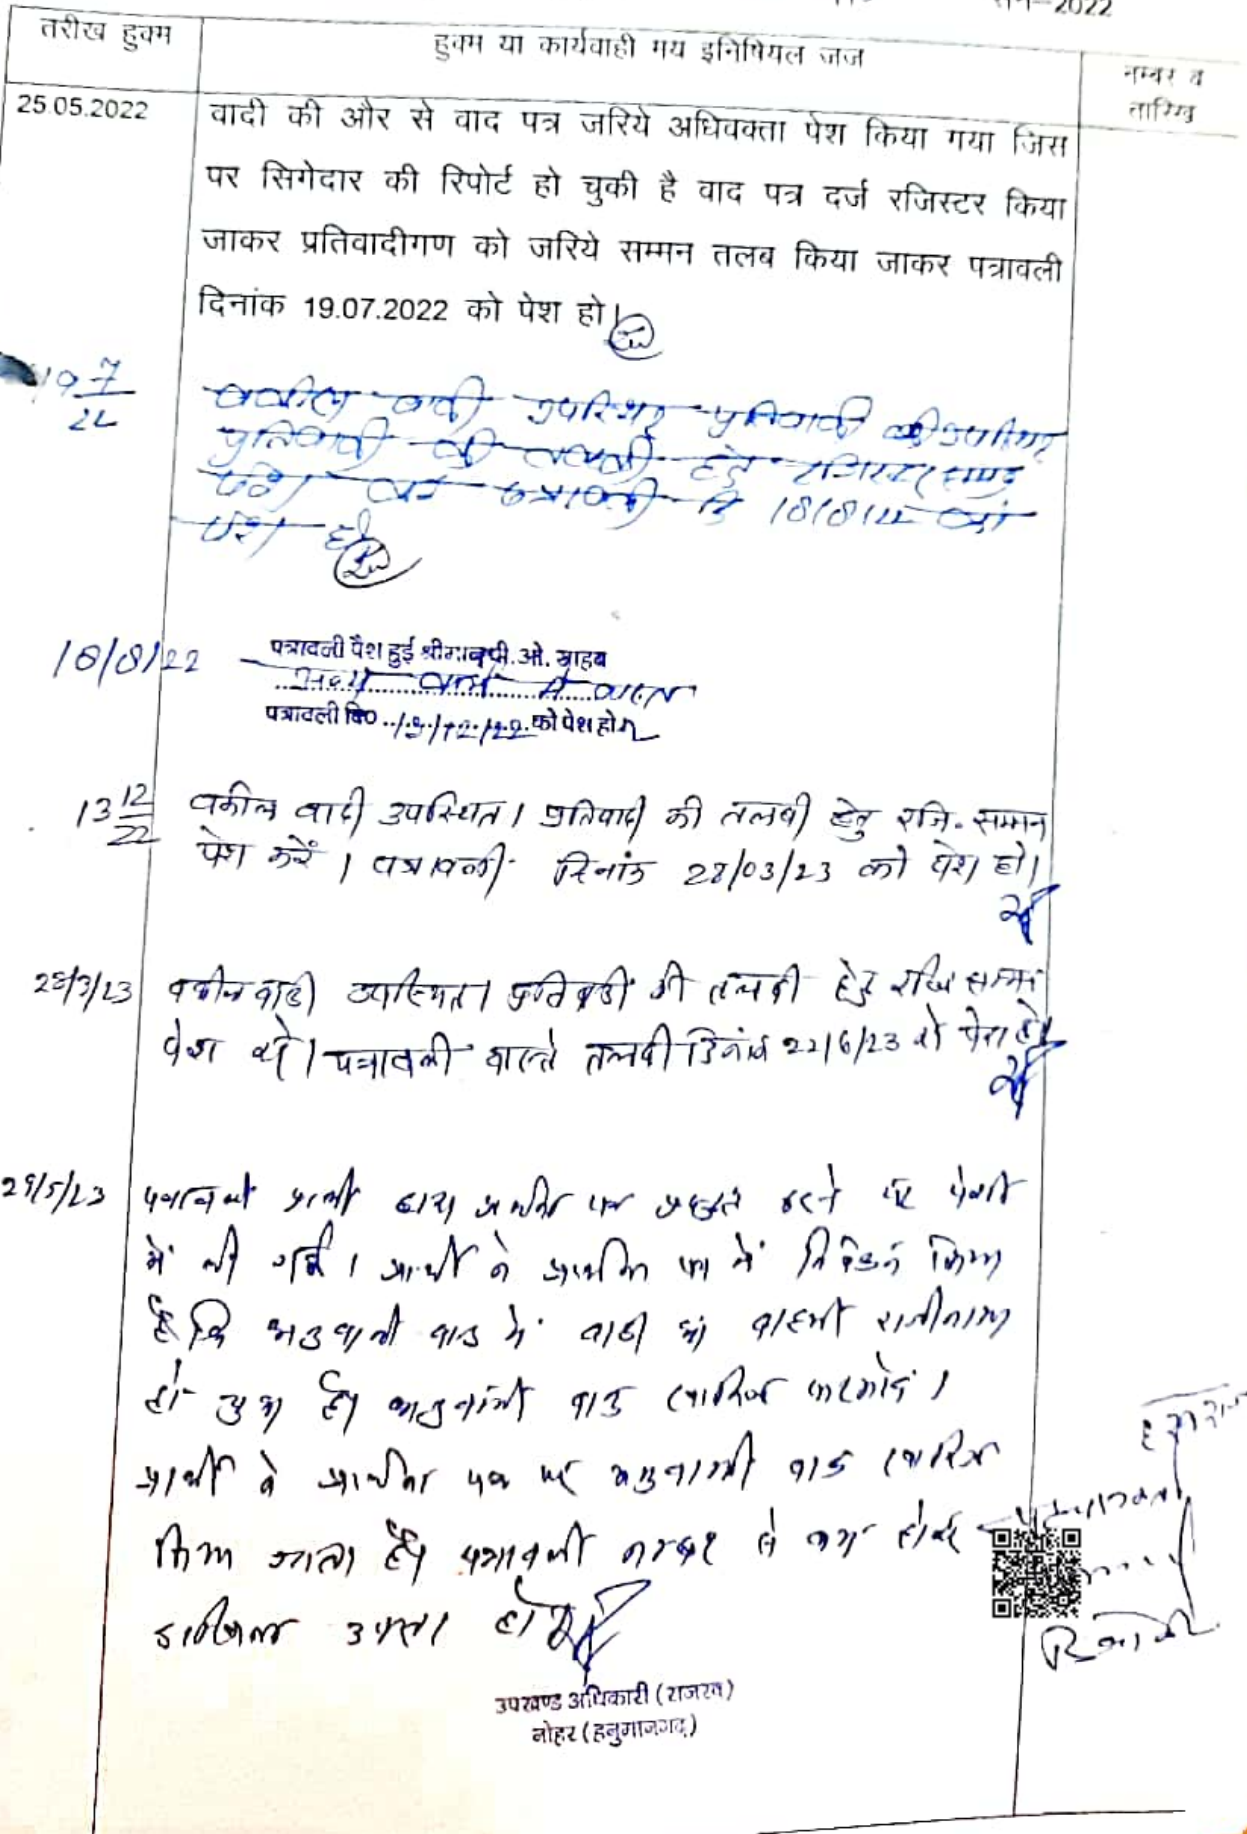 सन-2022
तरीख हुक्म
हुक्म या कार्यवाही मय इनिषियल जज
नम्बर व
तारिख
25.05.2022
वादी की और से वाद पत्र जरिये अधिवक्ता पेश किया गया जिस
पर सिगेदार की रिपोर्ट हो चुकी है वाद पत्र दर्ज रजिस्टर किया
जाकर प्रतिवादीगण को जरिये सम्मन तलब किया जाकर पत्रावली
दिनांक 19.07.2022 को पेश हो।
19 7/22
वकील वादी उपस्थित प्रतिवादी
प्रतिवादी की तलबी हेतु रजिस्टर्ड
पेश करे पत्रावली दि 18/8/22 को
पेश हो
18/8/22
पत्रावली पैश हुई श्रीमान् पी.ओ. साहब
पत्रावली दि० 13/12/22 को पेश हो
13 12/22
वकील वादी उपस्थित। प्रतिवादी की तलबी हेतु रजि. सम्मन
पेश करें। पत्रावली दिनांक 28/03/23 को पेश हो।
28/3/23
वकील वादी उपस्थित। प्रतिवादी की तलबी हेतु रजि सम्मन
पेश करे। पत्रावली वास्ते तलबी दिनांक 22/6/23 को पेश हो।
29/5/23
पत्रावली प्रार्थी द्वारा प्रार्थना पत्र प्रस्तुत करने पर पेशी
में ली गई। प्रार्थी ने प्रार्थना पत्र में निवेदन किया
है कि अनुवानी वाद में वादी का बाहमी राजीनामा
हो चुका है। अनुवानी वाद खारिज फरमावें।
प्रार्थी के प्रार्थना पत्र पर अनुवानी वाद खारिज
किया जाता है। पत्रावली नम्बर से कम होकर
दाखिल दफ्तर हो
उपखण्ड अधिकारी (राजस्व)
नोहर (हनुमानगढ़)